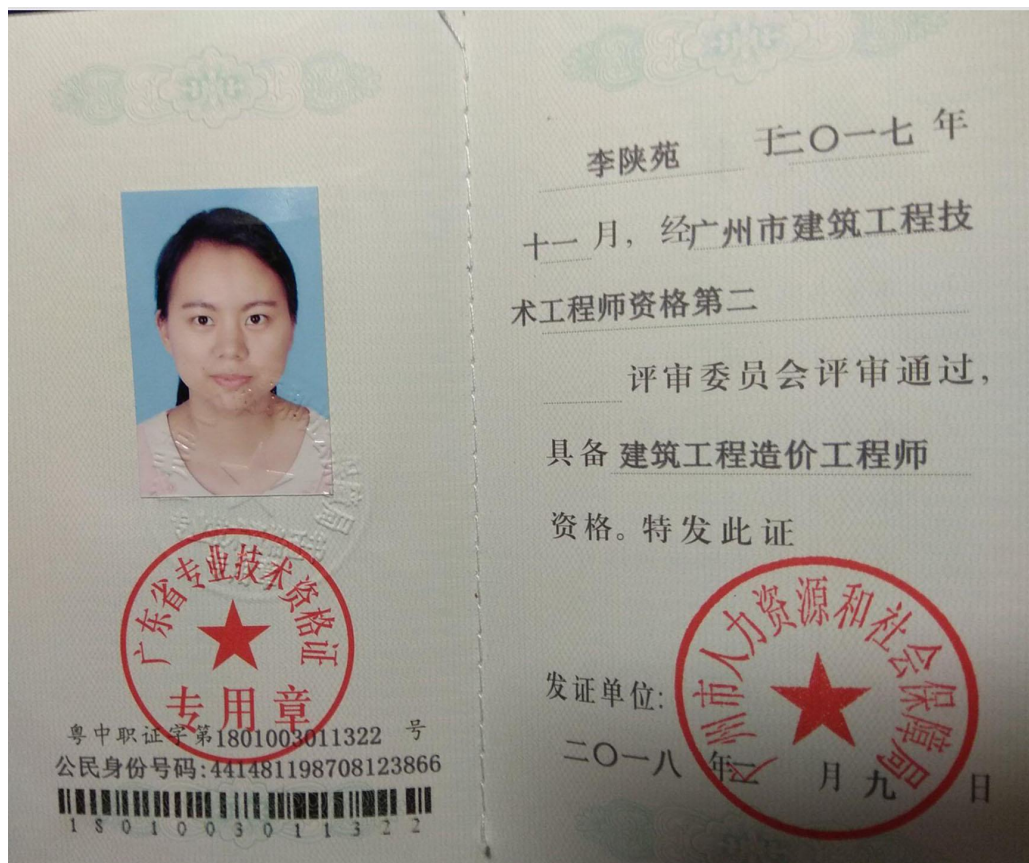 广东省专业技术资格证
专用章
粤中职证字第1801003011322 号
公民身份号码:441481198708123866
1801003011322
李陕苑 于二〇一七 年
十一 月，经广州市建筑工程技
术工程师资格第二
评审委员会评审通过，
具备 建筑工程造价工程师
资格。特发此证
广州市人力资源和社会保障局
发证单位:
二〇一八 年二 月九 日